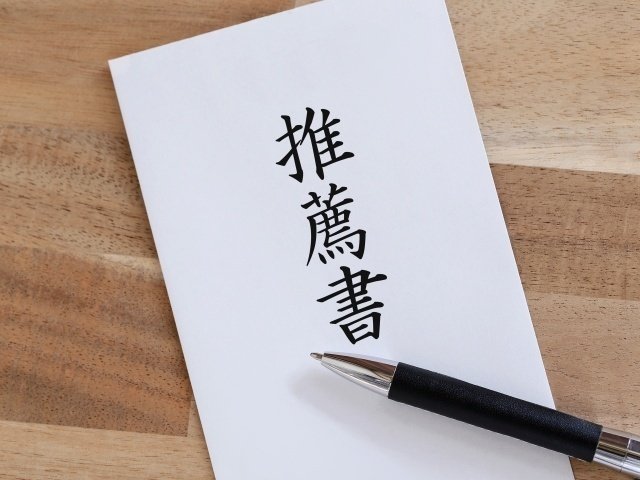 推薦書